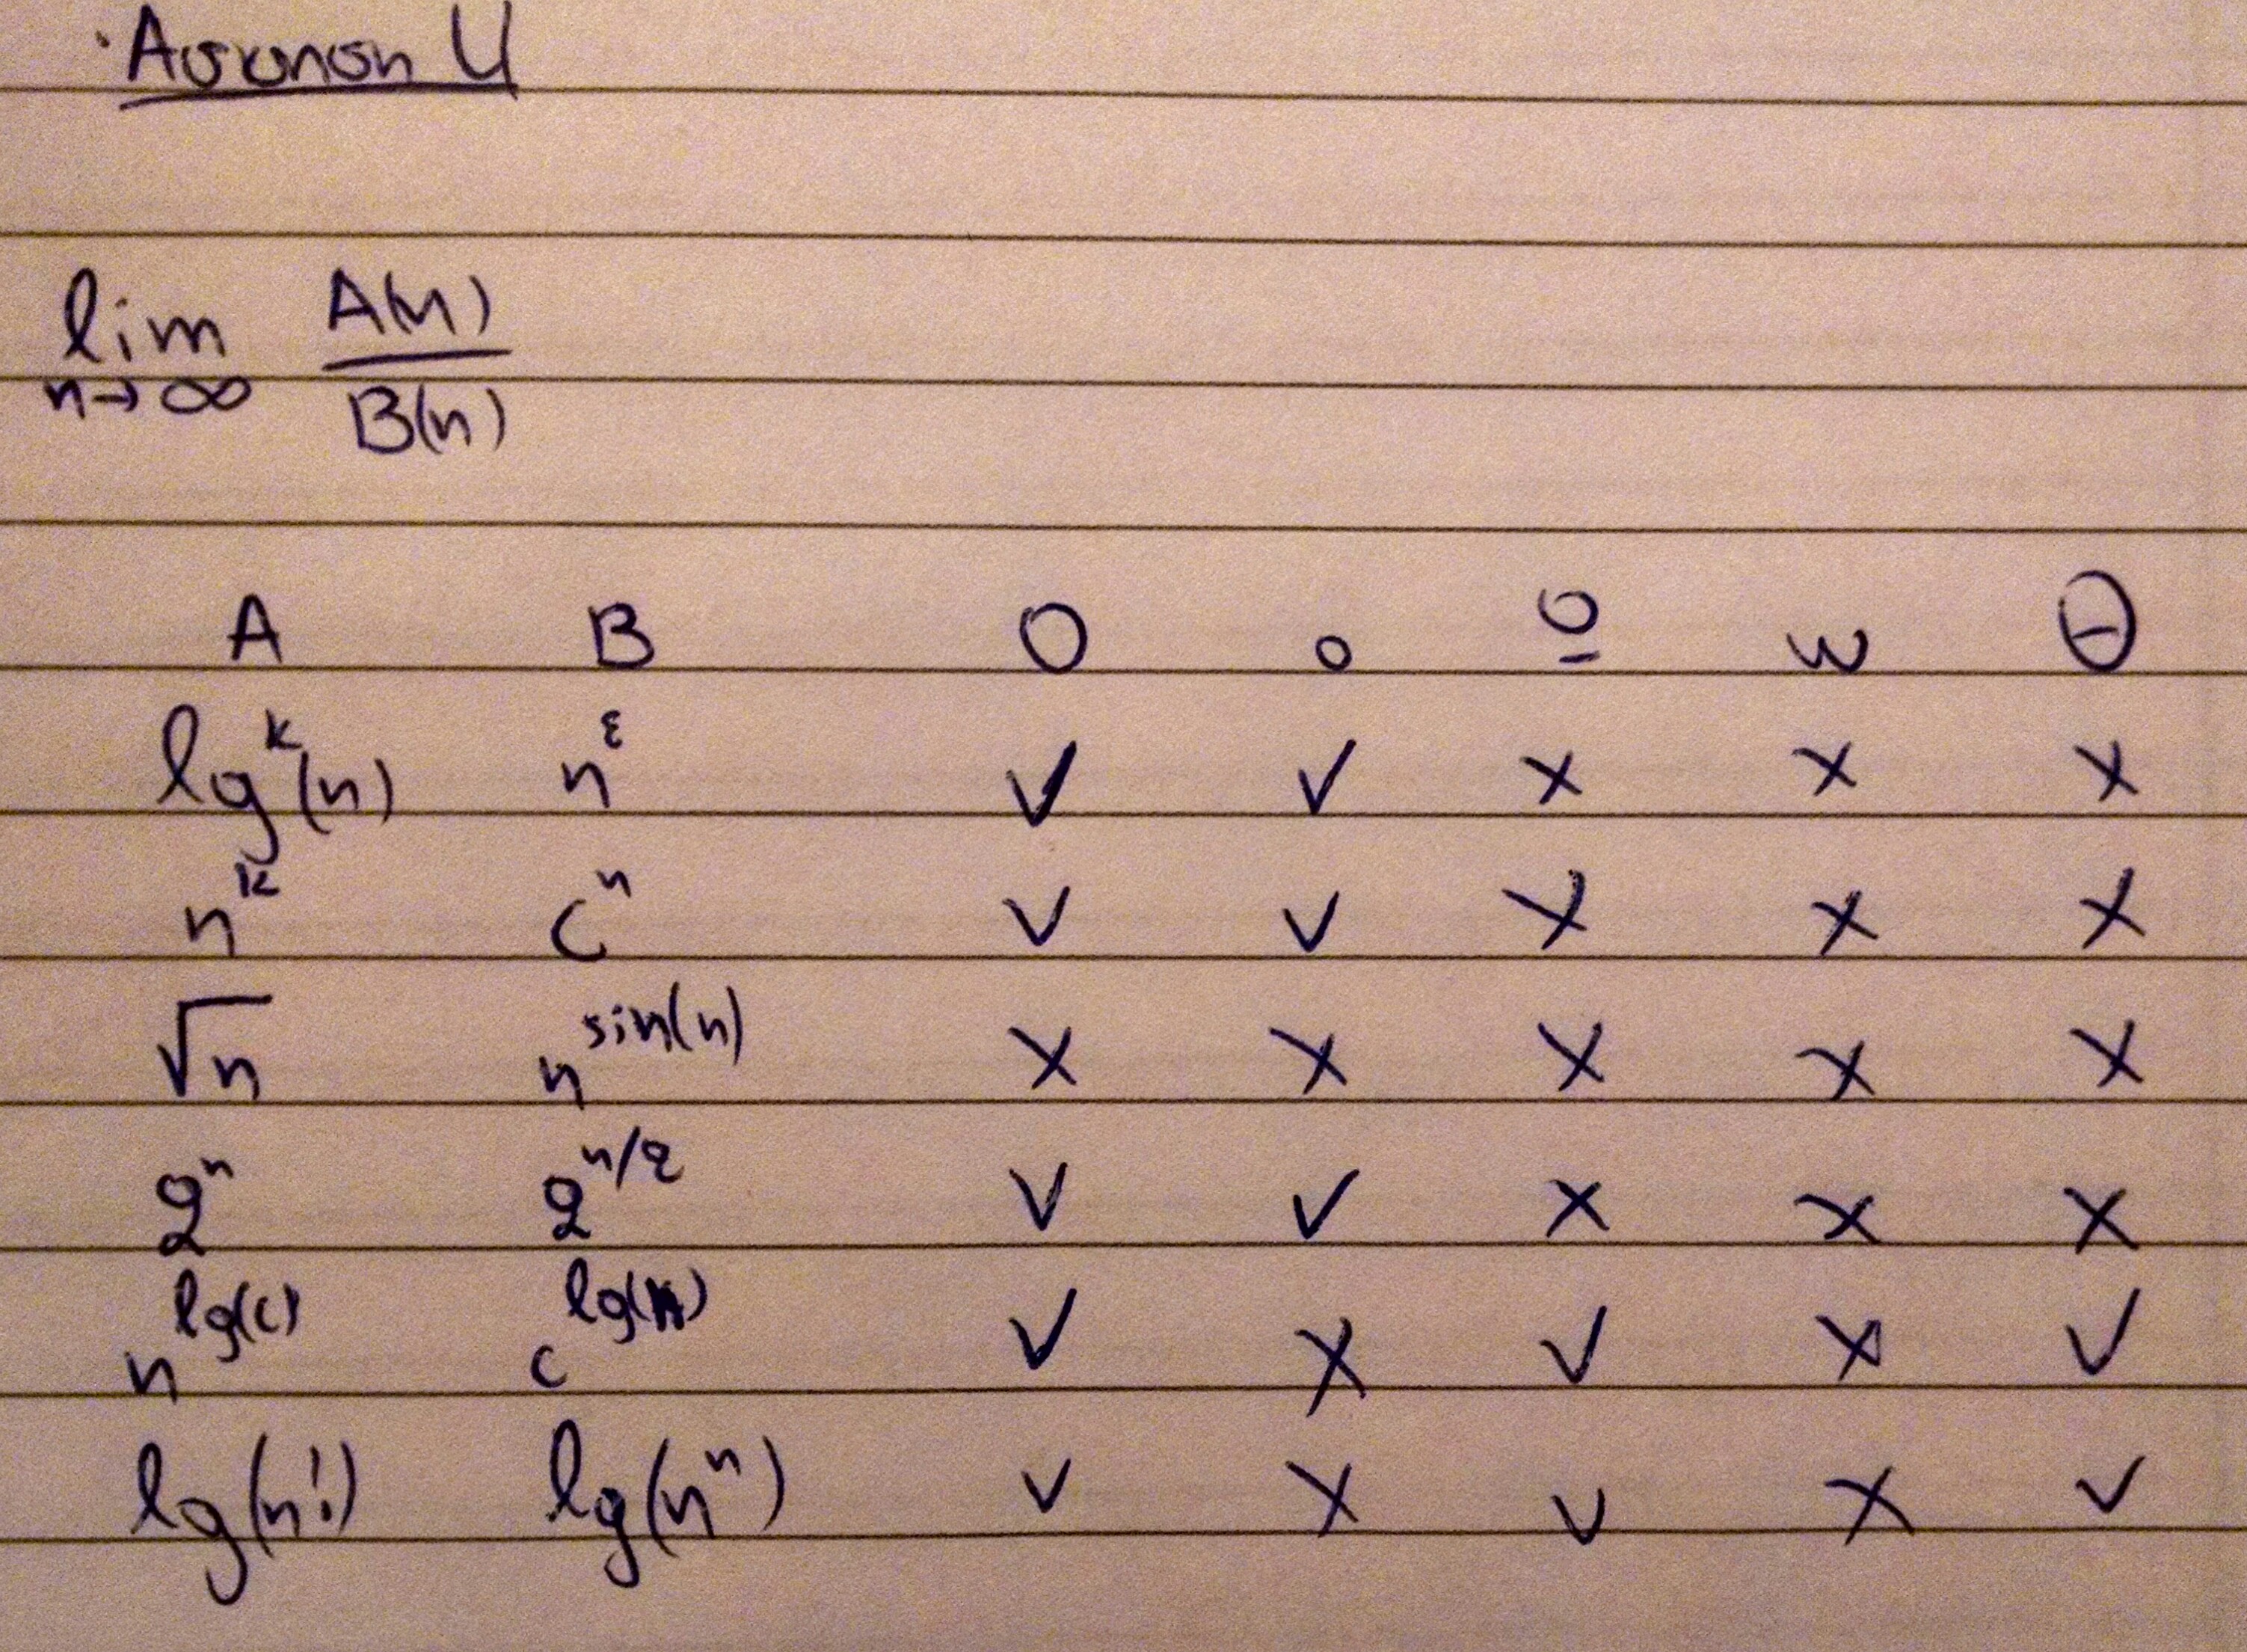 Άσκηση 4
lim n→∞ A(n)/B(n)
A B O o Ω ω Θ
lg^k(n) n^ε ✓ ✓ × × ×
n^k c^n ✓ ✓ × × ×
√n n^sin(n) × × × × ×
2^n 2^n/2 ✓ ✓ × × ×
n^lg(c) c^lg(n) ✓ × ✓ × ✓
lg(n!) lg(n^n) ✓ × ✓ × ✓